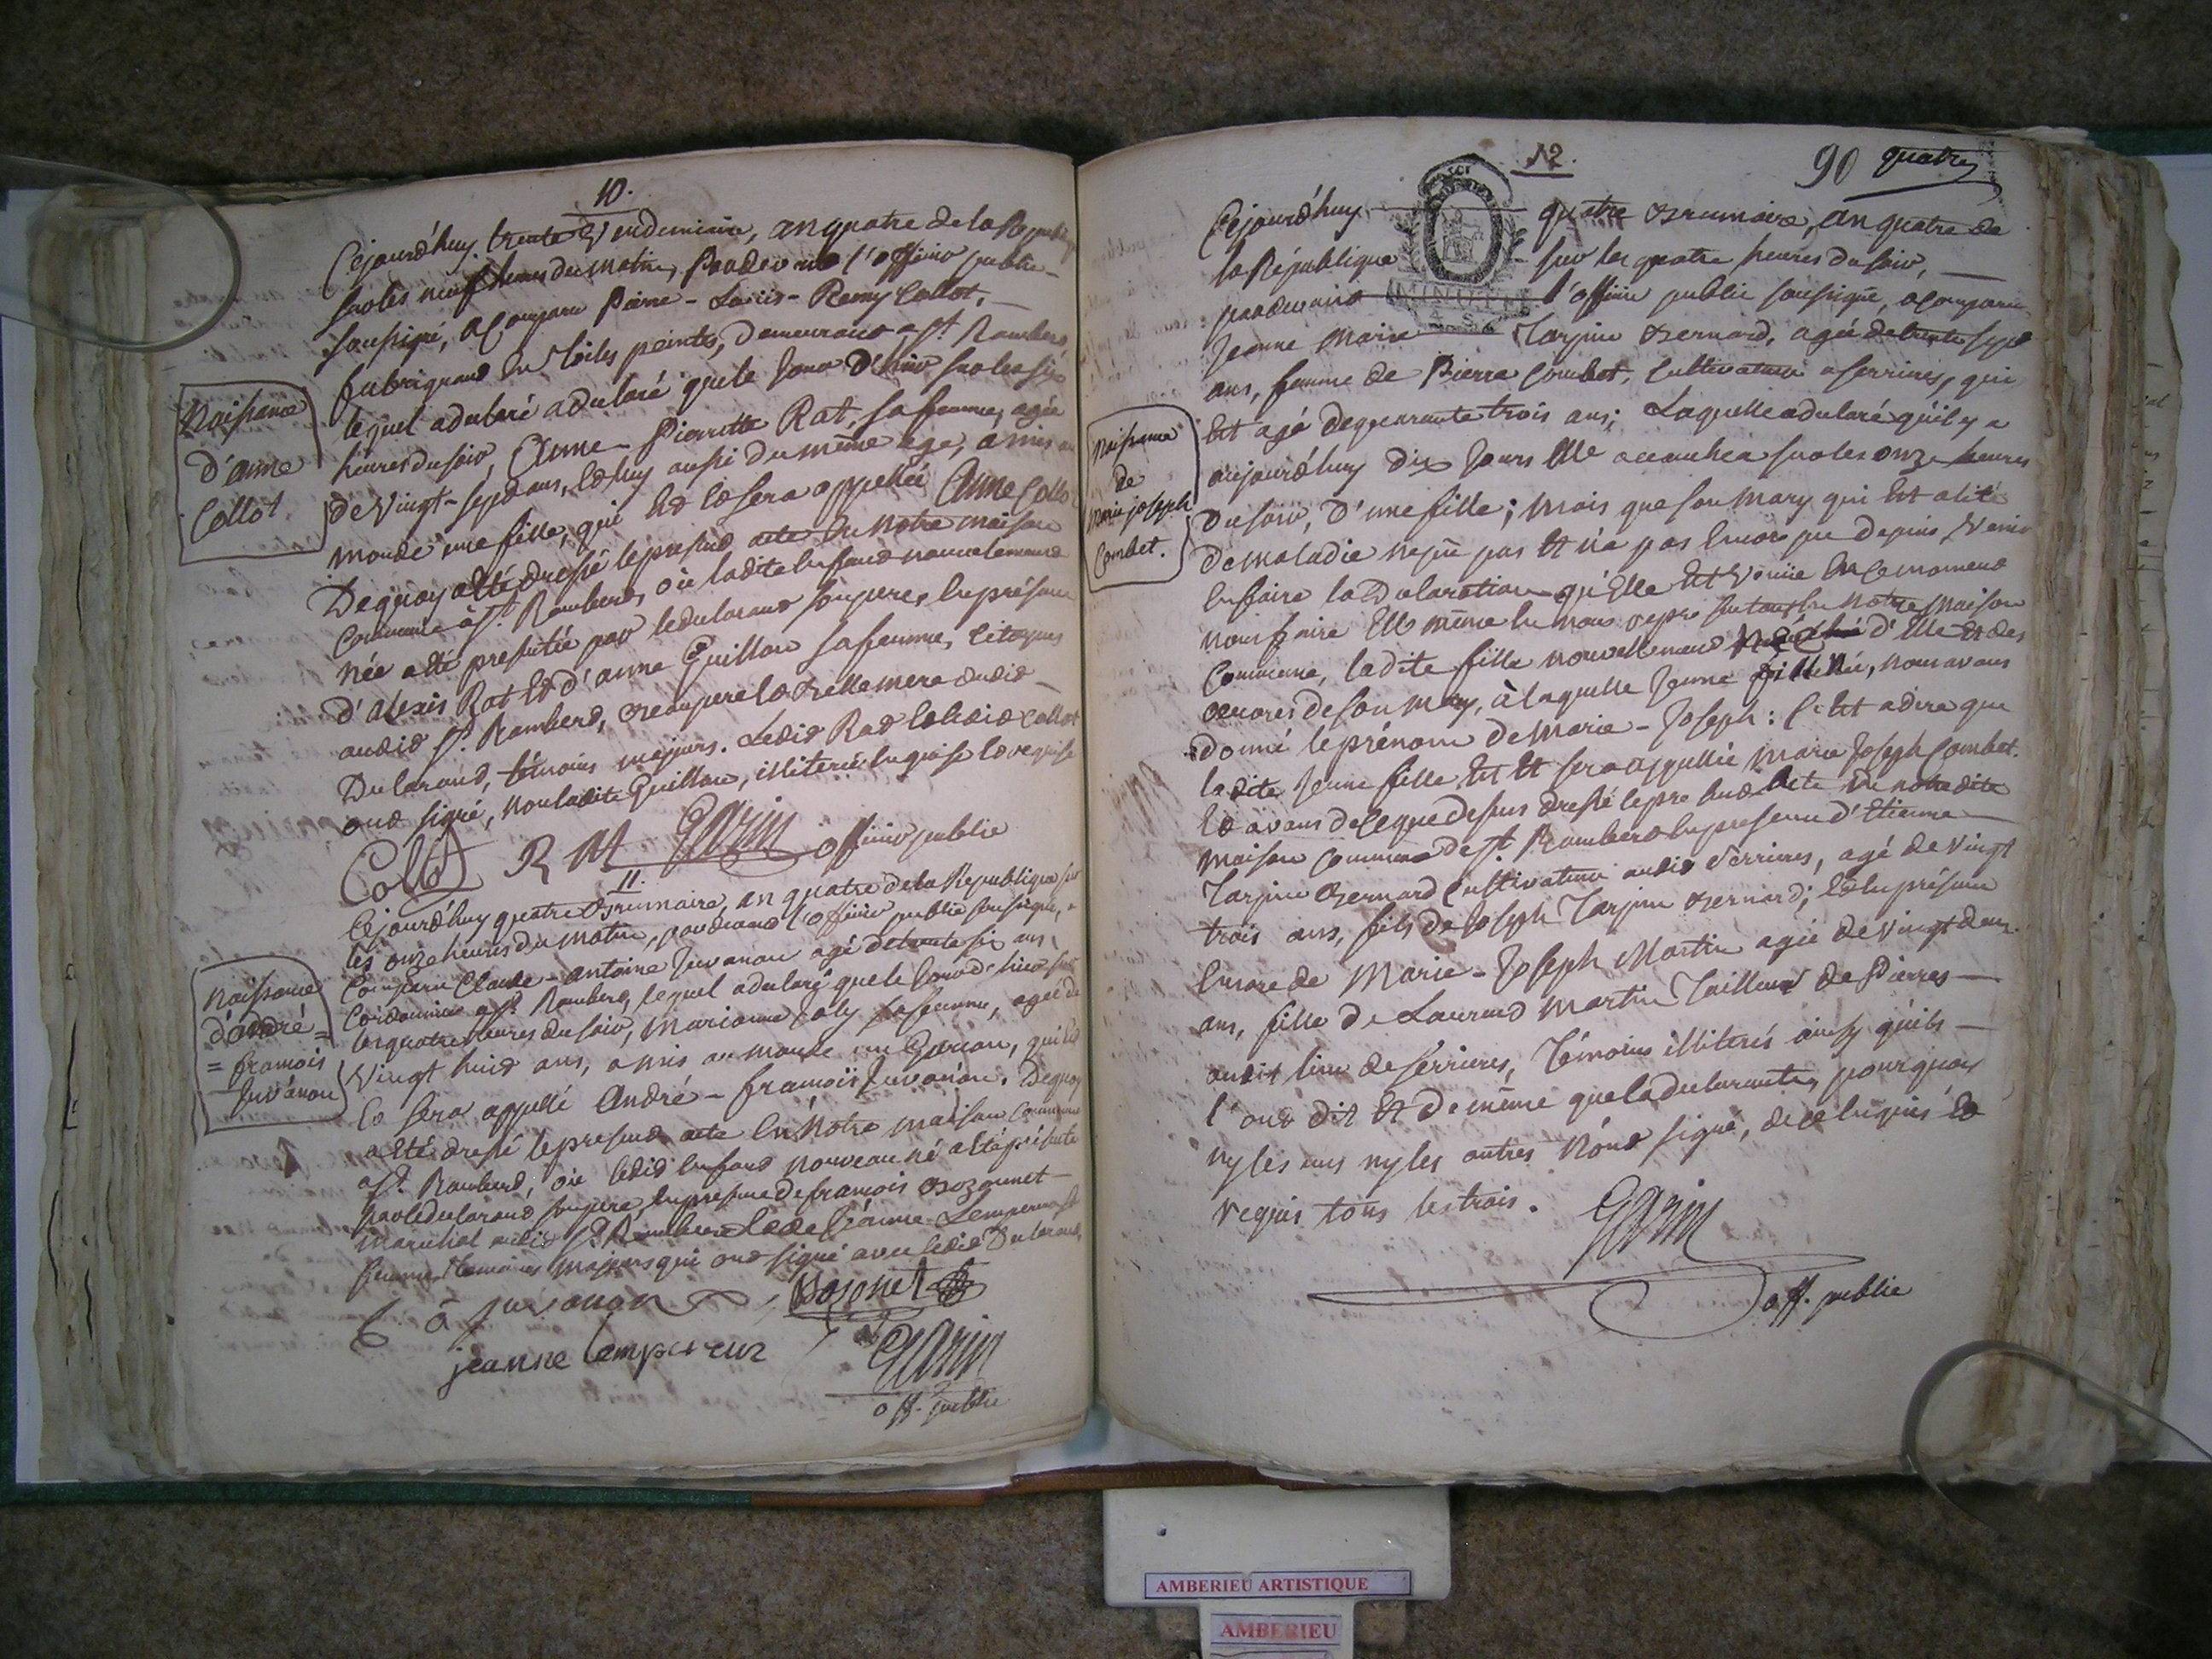 10.
Cejourd'huy trente Vendemiaire, an quatre de la Republique
sur les neuf heures du matin, Pardevant l'officier public
soussigné, a comparu Pierre-Louis-Remy Collot,
fabriquand en toiles peintes, demeurant a St. Rambert,
lequel a declaré a declaré que le jour d'hier sur les six
heures du soir, Anne-Pierrette Rat, sa femme, agée
de Vingt-sept ans, Et luy aussi du même age, a mis au
monde une fille, qui Est Et sera appellée Anne Collot
De quoy a Eté dressé le present acte En Notre maison
Commune à St. Rambert, où ladite Enfant nouvellement
née a Eté presentée par le declarant son pere, En présence
d'alexis Rat Et d'anne Guillon sa femme, Citoyens
audit St. Rambert, Beaupere Et Bellemere dudit
Declarant, témoins majeurs. Ledit Rat Et ledit Collot
ont signé, non ladite Guillon, illiterée Enquise Et requise
Naissance
d'anne
Collot
Collot RAt Garin officier public
11.
Cejourd'huy quatre Brumaire, an quatre de la Republique sur
les onze heures du matin, pardevant l'officier public soussigné, a
Comparu Claude-antoine Juvanon agé de trente six ans,
Cordonnier a St. Rambert, lequel a declaré que le jour d'hier sur
les quatre heures du soir, Marianne joly sa femme, agée de
Vingt huit ans, a mis au monde un Garçon, qui Est
Et sera appellé André-françois Juvanon. De quoy
a Eté dressé le present acte En Notre maison Commune
a St. Rambert, où ledit Enfant nouveau né a Eté présenté
par le declarant son pere En presence de françois Bozonnet
Marechal audit St. Rambert Et de Jeanne Lempereur
femme, temoins majeurs qui ont signé avec ledit Declarant,
Naissance
d'andré =
= françois
Juvanon
C a juvanon Bosonet
jeanne lempereur Garin
off. public
12.
90 quatre
Cejourd'huy quatre Brumaire, an quatre de
la République sur les quatre heures du soir,
pardevant l'officier public soussigné, a comparu
MINUTE
Jeanne Marie Tarpin Bernard, agée de trente sept
ans, femme de Pierre Combet, Cultivateur a serrieres, qui
Est agé de quarante trois ans; Laquelle a declaré qu'il y a
aujourd'huy dix jours Elle accoucha sur les onze heures
du soir, D'une fille; mais que son mary qui Est alité
de maladie n'a pas Encore pu depuis Venir
En faire la Declaration, qu'Elle Est Venüe En ce moment
nous faire Elle même En nous representant En Notre Maison
Commune, ladite fille nouvellement née d'Elle Et des
œuvres de son mary, à laquelle jeune fille, nous avons
donné le prénom de Marie-Joseph: C'Est a dire que
ladite jeune fille Est Et sera appellée Marie Joseph Combet.
Et avons de ce que dessus dressé le present acte En notredite
maison Commune de St. Rambert En presence d'Etienne
Tarpin Bernard Cultivateur audit serrieres, agé de Vingt
trois ans, fils de Joseph Tarpin Bernard; Et En présence
Encore de Marie-Joseph Martin agée de vingt deux
ans, fille de Laurent Martin Tailleur de Pierres
audit lieu de serrieres, Témoins illiterés ainsy qu'ils
l'ont dit Et de même que la declarante, pourquoy
ny les uns ny les autres N'ont signé, de ce Enquis Et
requis tous les trois.
Naissance
de
Marie joseph
Combet.
Garin
off. public
AMBERIEU ARTISTIQUE
AMBERIEU